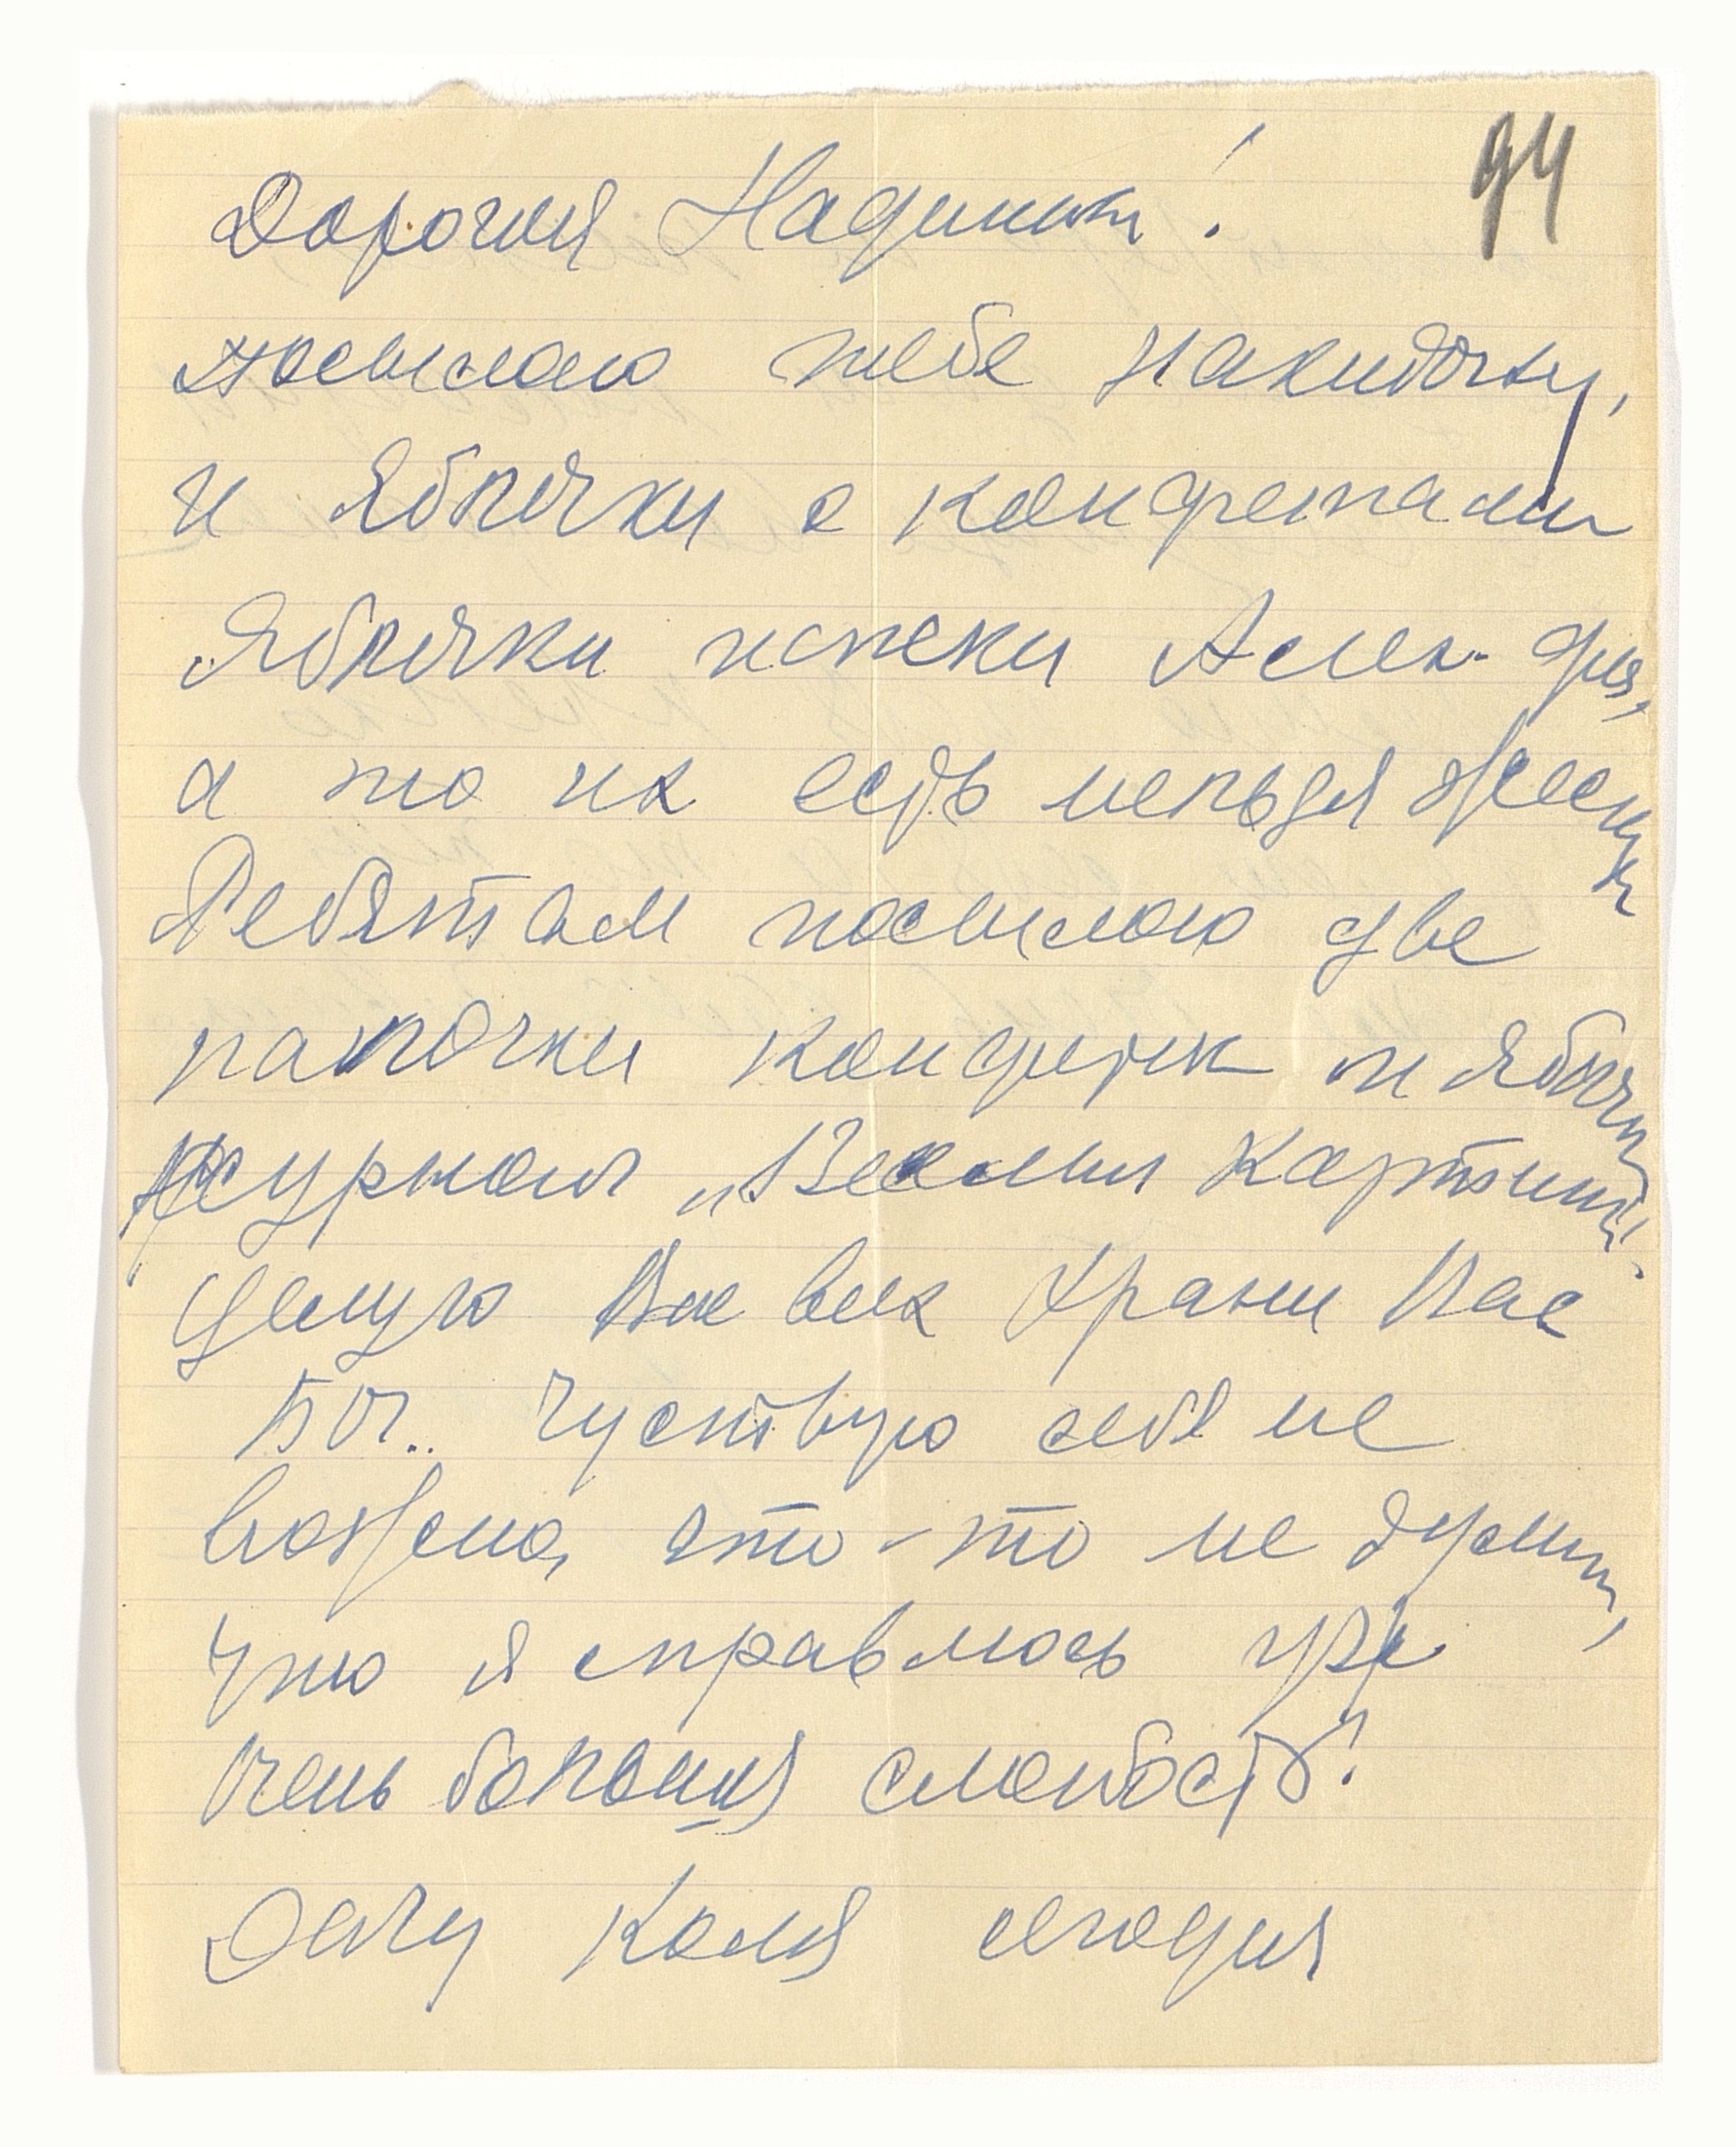 94
Дорогая Надинька!
посылаю тебе накидочку,
и яблочки с конфетами
Яблочки испеки Алек-
а то их есть нельзя жестки
Ребятам посылаю две
папочки конфеток и яблочки
журнал „Веселыя Картинки".
Целую Вас всех Храни Вас
Бог.. Чуствую себя не
важено, что-то не думаю,
что я справлюсь уж
очень большая слабость!
Дачу Коля сегодня